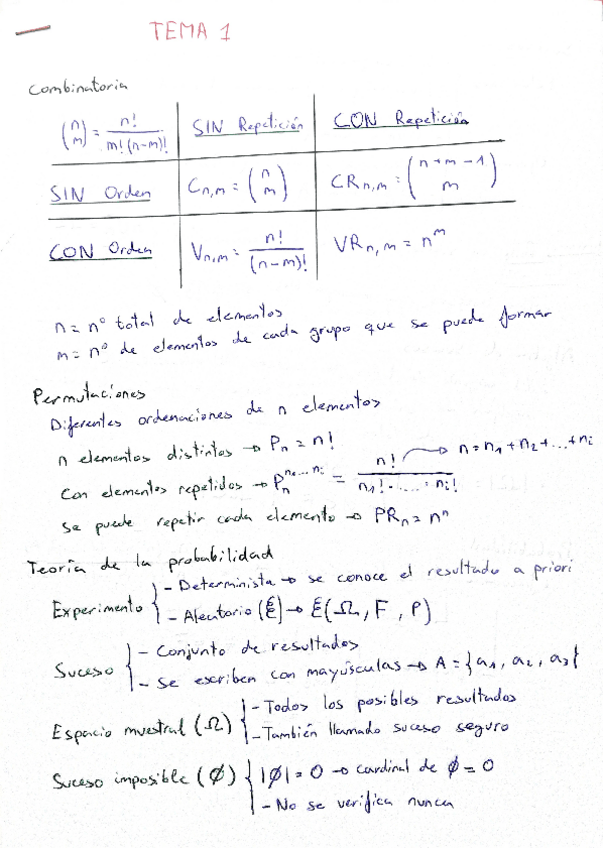 TEMA 1
Combinatoria
(n m) = n! / m!(n-m)! | SIN Repetición | CON Repetición
SIN Orden | Cn,m = (n m) | CRn,m = (n+m-1 m)
CON Orden | Vn,m = n! / (n-m)! | VRn,m = n^m
n = nº total de elementos
m = nº de elementos de cada grupo que se puede formar
Permutaciones
Diferentes ordenaciones de n elementos
n elementos distintos → Pn = n!
Con elementos repetidos → Pn^(n1...ni) = n! / n1!·....·ni! → n = n1 + n2 + ... + ni
Se puede repetir cada elemento → PRn = n^n
Teoría de la probabilidad
Experimento { - Determinista → se conoce el resultado a priori
- Aleatorio (ξ) → ξ(Ω, F, P)
Suceso { - Conjunto de resultados
- Se escriben con mayúsculas → A = {a1, a2, a3}
Espacio muestral (Ω) { - Todos los posibles resultados
- También llamado suceso seguro
Suceso imposible (Ø) { |Ø| = 0 → cardinal de Ø = 0
- No se verifica nunca